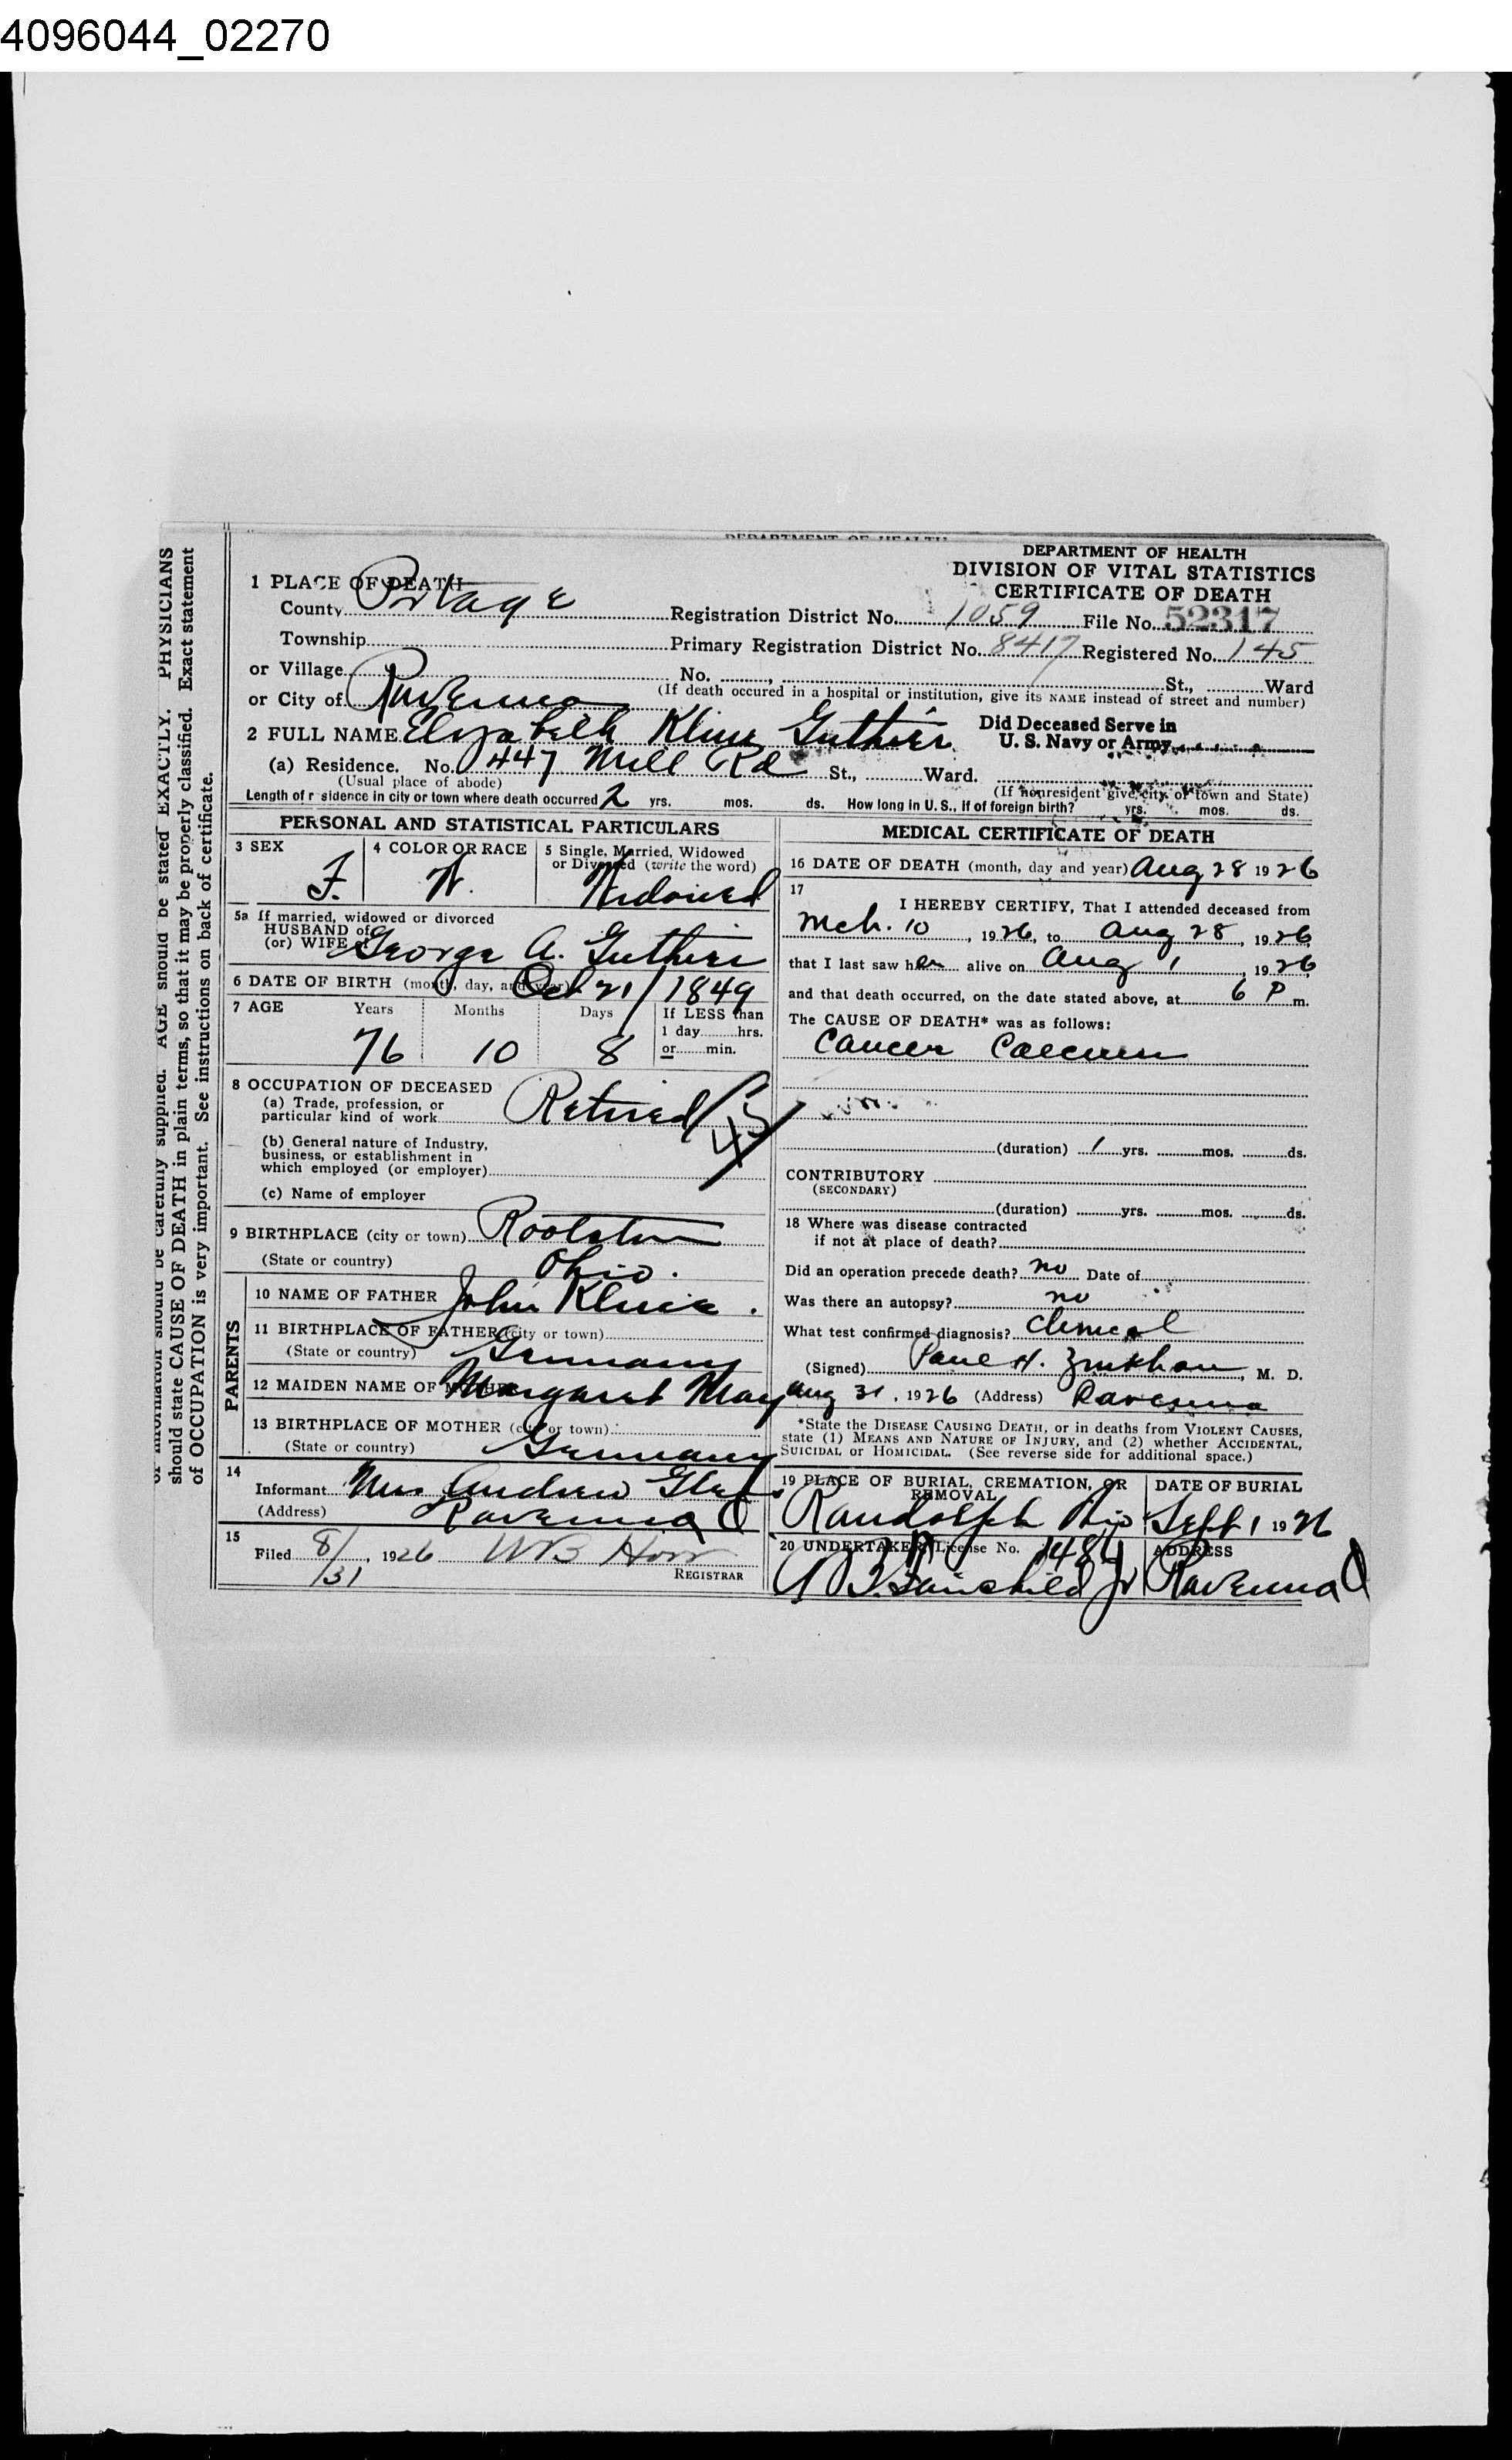 4096044_02270
DEPARTMENT OF HEALTH
DEPARTMENT OF HEALTH
DIVISION OF VITAL STATISTICS
CERTIFICATE OF DEATH
1 PLACE OF DEATH
County Portage Registration District No. 1059 File No. 52317
Township Primary Registration District No. 8417 Registered No. 145
or Village No. , St., Ward
(If death occured in a hospital or institution, give its NAME instead of street and number)
or City of Ravenna
2 FULL NAME Elizabeth Kline Guthier Did Deceased Serve in
U. S. Navy or Army
(a) Residence. No. 447 Mill Rd St., Ward.
(Usual place of abode) (If nonresident give city or town and State)
Length of r sidence in city or town where death occurred 2 yrs. mos. ds. How long in U. S., if of foreign birth? yrs. mos. ds.
PERSONAL AND STATISTICAL PARTICULARS
3 SEX F.
4 COLOR OR RACE W.
5 Single, Married, Widowed
or Divorced (write the word)
Widowed
5a If married, widowed or divorced
HUSBAND of
(or) WIFE of George A. Guthier
6 DATE OF BIRTH (month, day, and year) Oct 21/1849
7 AGE Years Months Days If LESS than
1 day hrs.
or min.
76 10 8
8 OCCUPATION OF DECEASED
(a) Trade, profession, or
particular kind of work Retired
45
(b) General nature of Industry,
business, or establishment in
which employed (or employer)
(c) Name of employer
9 BIRTHPLACE (city or town) Rootstown
(State or country) Ohio.
PARENTS
10 NAME OF FATHER John Kline.
11 BIRTHPLACE OF FATHER (city or town)
(State or country) Germany
12 MAIDEN NAME OF MOTHER Margaret May
13 BIRTHPLACE OF MOTHER (city or town)
(State or country) Germany
14
Informant Mrs Andrew
(Address) Ravenna O
15
Filed 8/31, 1926 WB
REGISTRAR
MEDICAL CERTIFICATE OF DEATH
16 DATE OF DEATH (month, day and year) Aug 28 1926
17
I HEREBY CERTIFY, That I attended deceased from
Mch. 10, 1926, to Aug 28, 1926,
that I last saw her alive on Aug 1, 1926
and that death occurred, on the date stated above, at 6 P m.
The CAUSE OF DEATH* was as follows:
Cancer Caecum
(duration) 1 yrs. mos. ds.
CONTRIBUTORY
(SECONDARY)
(duration) yrs. mos. ds.
18 Where was disease contracted
if not at place of death?
Did an operation precede death? no Date of
Was there an autopsy? no
What test confirmed diagnosis? Clinical
(Signed) Paul H. Zinkhan, M. D.
Aug 31, 1926 (Address) Ravenna
*State the DISEASE CAUSING DEATH, or in deaths from VIOLENT CAUSES,
state (1) MEANS AND NATURE OF INJURY, and (2) whether ACCIDENTAL,
SUICIDAL or HOMICIDAL. (See reverse side for additional space.)
19 PLACE OF BURIAL, CREMATION, OR
REMOVAL
Randolph Ohio
DATE OF BURIAL
Sept 1 1926
20 UNDERTAKER License No. 1484
Fairchild Jr
ADDRESS
Ravenna O
should be carefully supplied. AGE should be stated EXACTLY. PHYSICIANS
should state CAUSE OF DEATH in plain terms, so that it may be properly classified. Exact statement
of OCCUPATION is very important. See instructions on back of certificate.